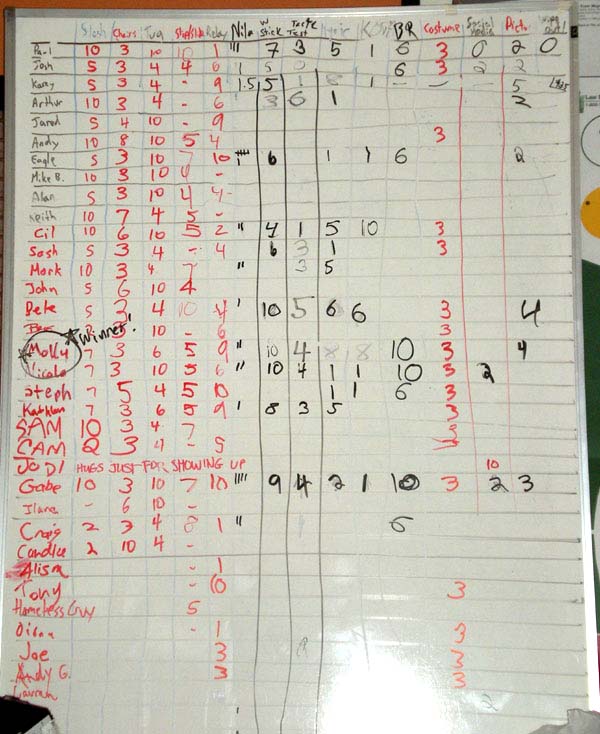 Slosh Chairs Tug Relay Nila W Stick Taste Test BR Costume Social Media Pict
Paul 10 3 10 10 1 ''' 7 3 5 1 6 3 0 2 0
Josh 5 3 4 4 6 1 5 0 6 3 2 2
Kasey 5 3 4 - 9 1.5 5 1 8 1 - - 5
Arthur 10 3 4 - 6 3 6 1 2
Jared 5 4 10 - 9
Andy 10 8 10 5 4 3
Eagle 5 3 10 7 10 6 1 1 6 2
Mike B. 10 3 10 4 -
Alan 5 3 10 4 4-
Keith 10 7 4 5 -
Cil 10 6 10 5 2 " 4 1 5 10 3
Sash 5 3 4 - 4 6 3 1 3
Mark 10 3 4 7 " 3 5
John 5 6 10 4
Pete 5 3 4 10 4 ' 10 5 6 6 3 4
3 10 - 6 3
*Winner!
Molly 7 3 6 5 9 " 10 4 8 8 10 3 4
Nicole 7 3 10 5 6 " 10 4 1 1 10 3 2
Steph 7 5 4 5 10 1 1 6 3
Kathleen 7 3 6 5 9 ' 8 3 5 3
SAM 10 3 4 7 3
CAM 2 3 4 - 5 3
JODI HUGS JUST FOR SHOWING UP 10
Gabe 10 3 10 7 10 '''' 9 4 2 1 10 3 2 3
Ilana - 6 10 -
Craig 2 3 4 8 1 " 6
Candice 2 10 4 -
Alism - 1
Tony - 10 3
Homeless Guy 5
Diana - 1 3
Joe 3 3
Andy G. 3 3
Lauren 2